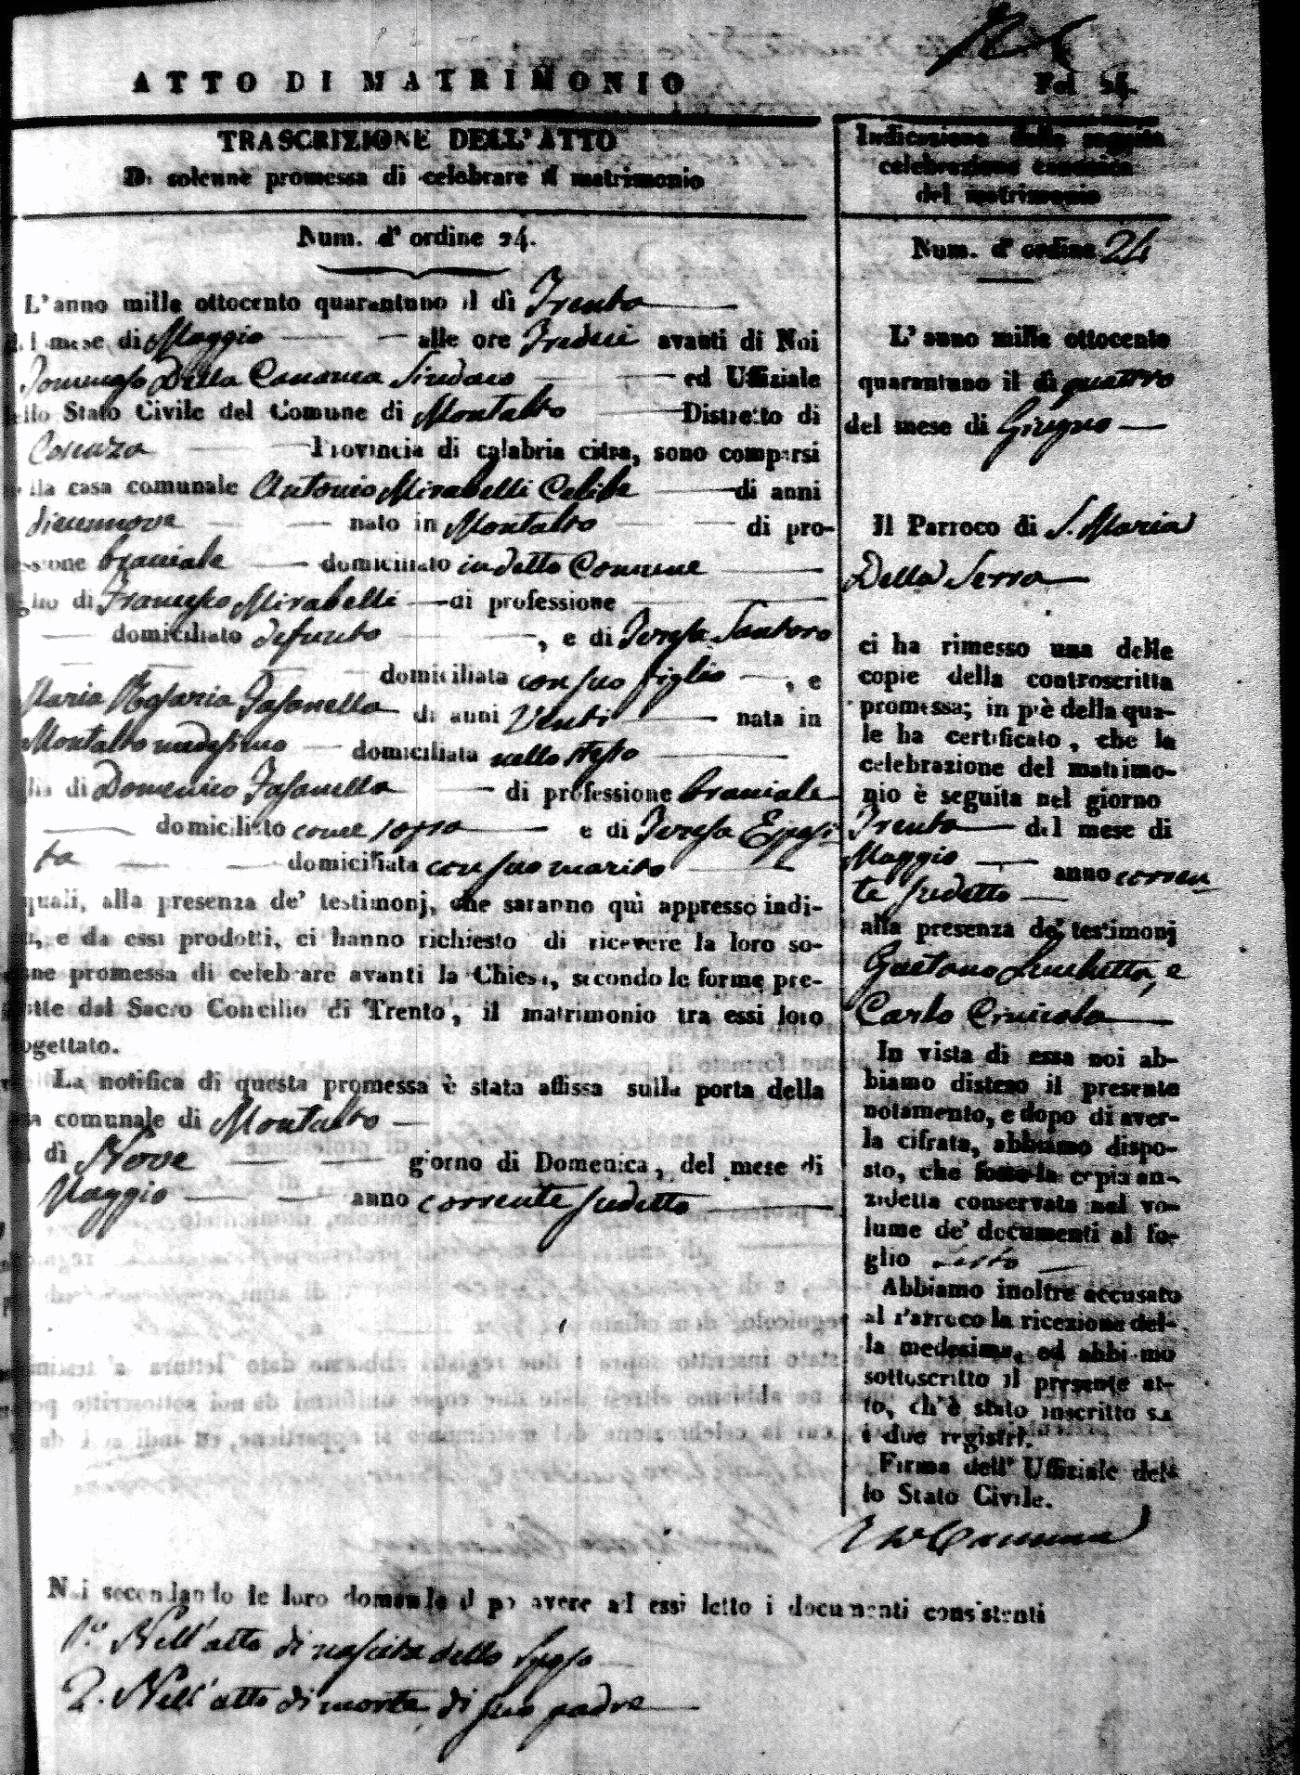 ATTO DI MATRIMONIO
Fol 24.
TRASCRIZIONE DELL'ATTO
Di solenne promessa di celebrare il matrimonio
Num. d'ordine 24.
L'anno mille ottocento quarantuno il dì Trenta
mese di Maggio alle ore Tredici avanti di Noi
Tommaso Della Canonea Sindaco ed Uffiziale
dello Stato Civile del Comune di Montalto Distretto di
Cosenza Provincia di calabria citra, sono comparsi
nella casa comunale Antonio Mirabelli Celibe di anni
diecinnove nato in Montalto di pro-
essione braciale domiciliato in detto Comune
glio di Francesco Mirabelli di professione
domiciliato defunto , e di Teresa Santoro
domiciliata con suo figlio , e
Maria Rosaria Fasanella di anni Venti nata in
Montalto medesimo domiciliata nello stesso
lia di Domenico Fasanella di professione braciale
domiciliato come sopra e di Teresa Esposi-
ta domiciliata con suo marito
quali, alla presenza de' testimonj, che saranno quì appresso indi-
ti, e da essi prodotti, ci hanno richiesto di ricevere la loro so-
nne promessa di celebrare avanti la Chiesa, secondo le forme pre-
itte dal Sacro Concilio di Trento, il matrimonio tra essi loro
ogettato.
La notifica di questa promessa è stata affissa sulla porta della
sa comunale di Montalto
dì Nove giorno di Domenica, del mese di
Maggio anno corrente sudetto
Indicazione della seguita
celebrazione canonica
del matrimonio
Num. d'ordine 24
L'anno mille ottocento
quarantuno il dì quattro
del mese di Giugno
Il Parroco di S. Maria
Della Serra
ci ha rimesso una delle
copie della controscritta
promessa; in piè della qua-
le ha certificato, che la
celebrazione del matrimo-
nio è seguita nel giorno
Trenta del mese di
Maggio anno corren
te sudetto
alla presenza de' testimonj
Gaetano Luchetta, e
Carlo
In vista di essa noi ab-
biamo disteso il presente
notamento, e dopo di aver-
la cifrata, abbiamo dispo-
sto, che fosse la copia an-
zidetta conservata nel vo-
lume de' documenti al fo-
glio
Abbiamo inoltre accusato
al Parroco la ricezione del-
la medesima, ed abbiamo
sottoscritto il presente at-
to, ch'è stato inscritto su
i due registri.
Firma dell' Uffiziale del-
lo Stato Civile.
Noi secondando le loro domande d po avere ad essi letto i documenti consistenti
1.° Nell'atto di nascita dello sposo
2. Nell'atto di morte di suo padre